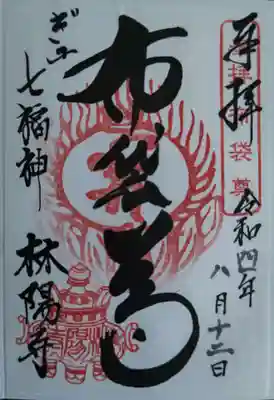 奉拝
令和四年
八月十二日
布袋尊
ぎふ
七福神
林陽寺